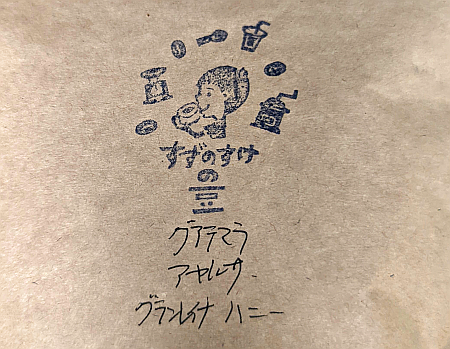 すずのすけ
の
豆
グアテマラ
アヤルサ
グランレイナ ハニー